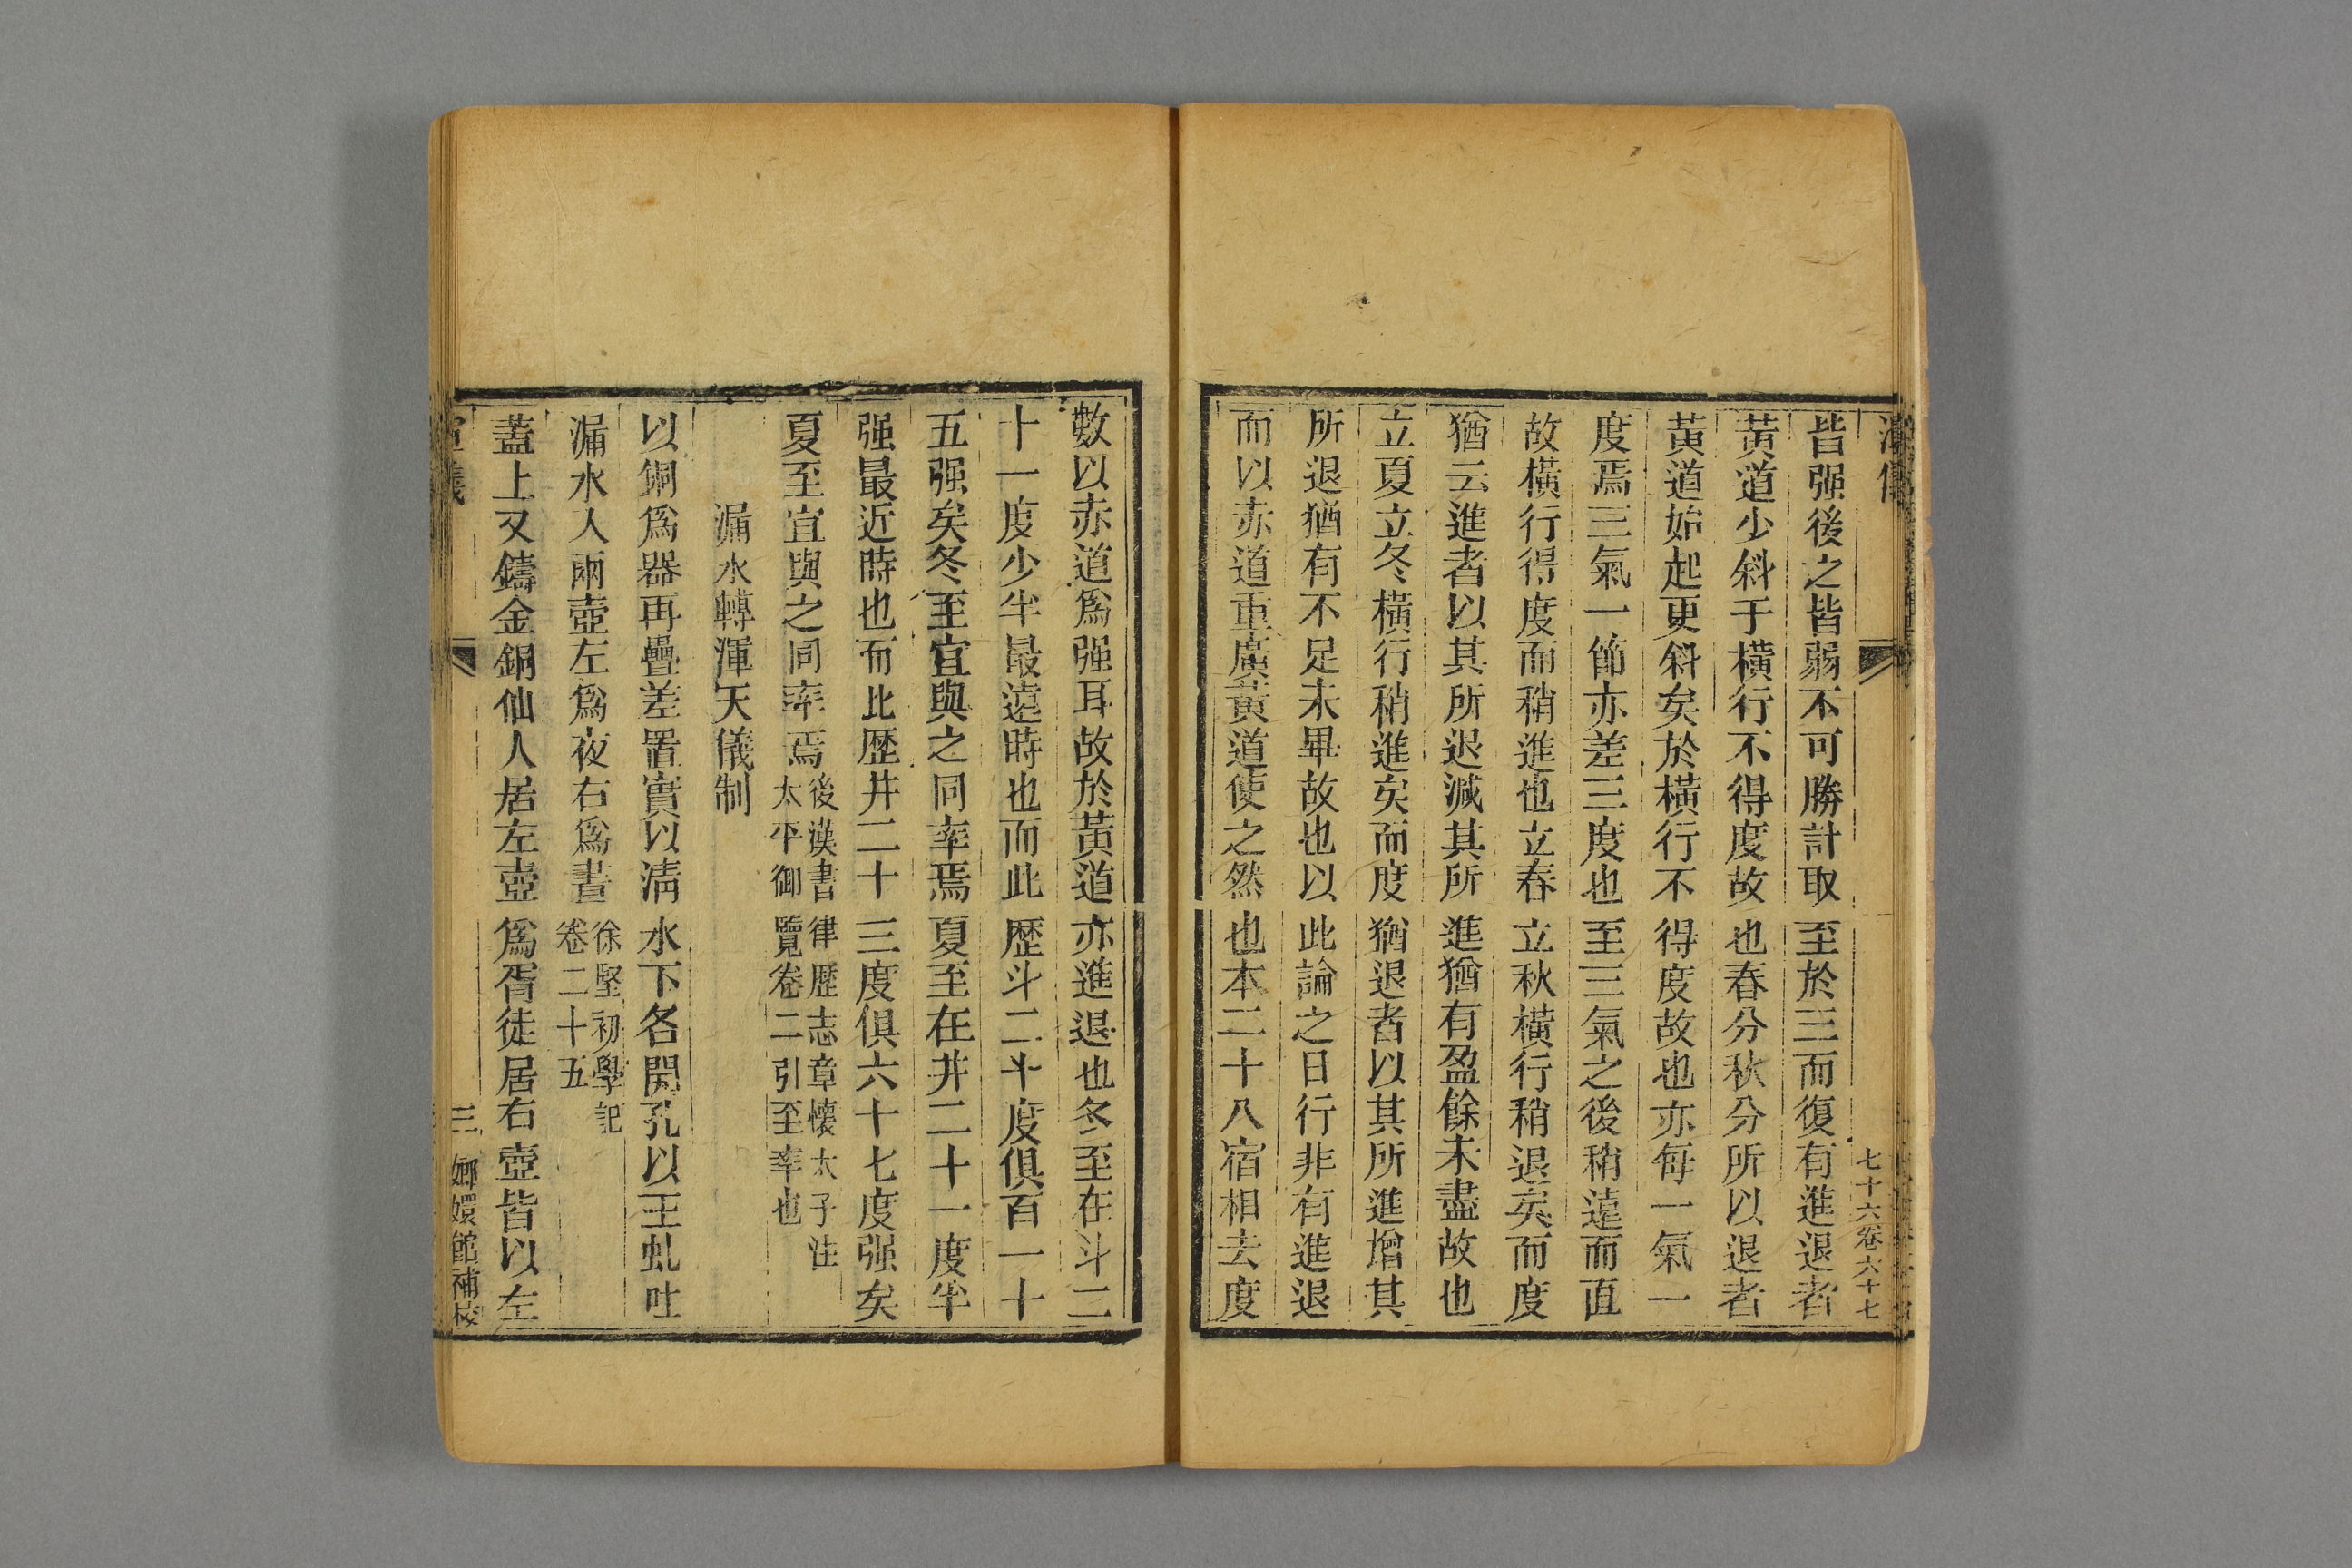 七十六卷六十七
皆强後之皆弱不可勝計取至於三而復有進退者
黃道少斜于橫行不得度故也春分秋分所以退者
黃道始起更斜矣於橫行不得度故也亦每一氣一
度焉三氣一節亦差三度也至三氣之後稍遠而直
故橫行得度而稍進也立春立秋橫行稍退矣而度
猶云進者以其所退減其所進猶有盈餘未盡故也
立夏立冬橫行稍進矣而度猶退者以其所進增其
所退猶有不足未畢故也以此論之日行非有進退
而以赤道重廣黃道使之然也本二十八宿相去度
數以赤道爲强耳故於黃道亦進退也冬至在斗二
十一度少半最遠時也而此歷斗二十度俱百一十
五强矣冬至宜與之同率焉夏至在井二十一度半
强最近時也而此歷井二十三度俱六十七度强矣
夏至宜與之同率焉後漢書律歷志章懷太子注
太平御覽卷二引至率也
漏水轉渾天儀制
以銅爲器再疊差置實以淸水下各開孔以玉虬吐
漏水入兩壺左爲夜右爲晝徐堅初學記
卷二十五
蓋上又鑄金銅仙人居左壺爲胥徒居右壺皆以左
三 嫏嬛館補校